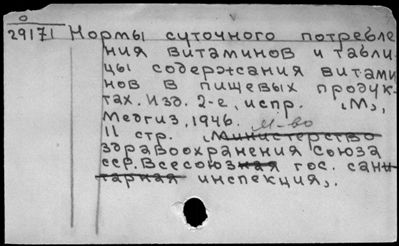 0
29171 Нормы суточного потребле-
ния витаминов и табли-
цы содержания витами
нов в пищевых продук-
тах. Изд. 2-е, испр. „М„
Медгиз, 1946. М-во
11 стр. „Министерство
здравоохранения Союза
сср. Всесоюзная гос. сани
тарная инспекция„.